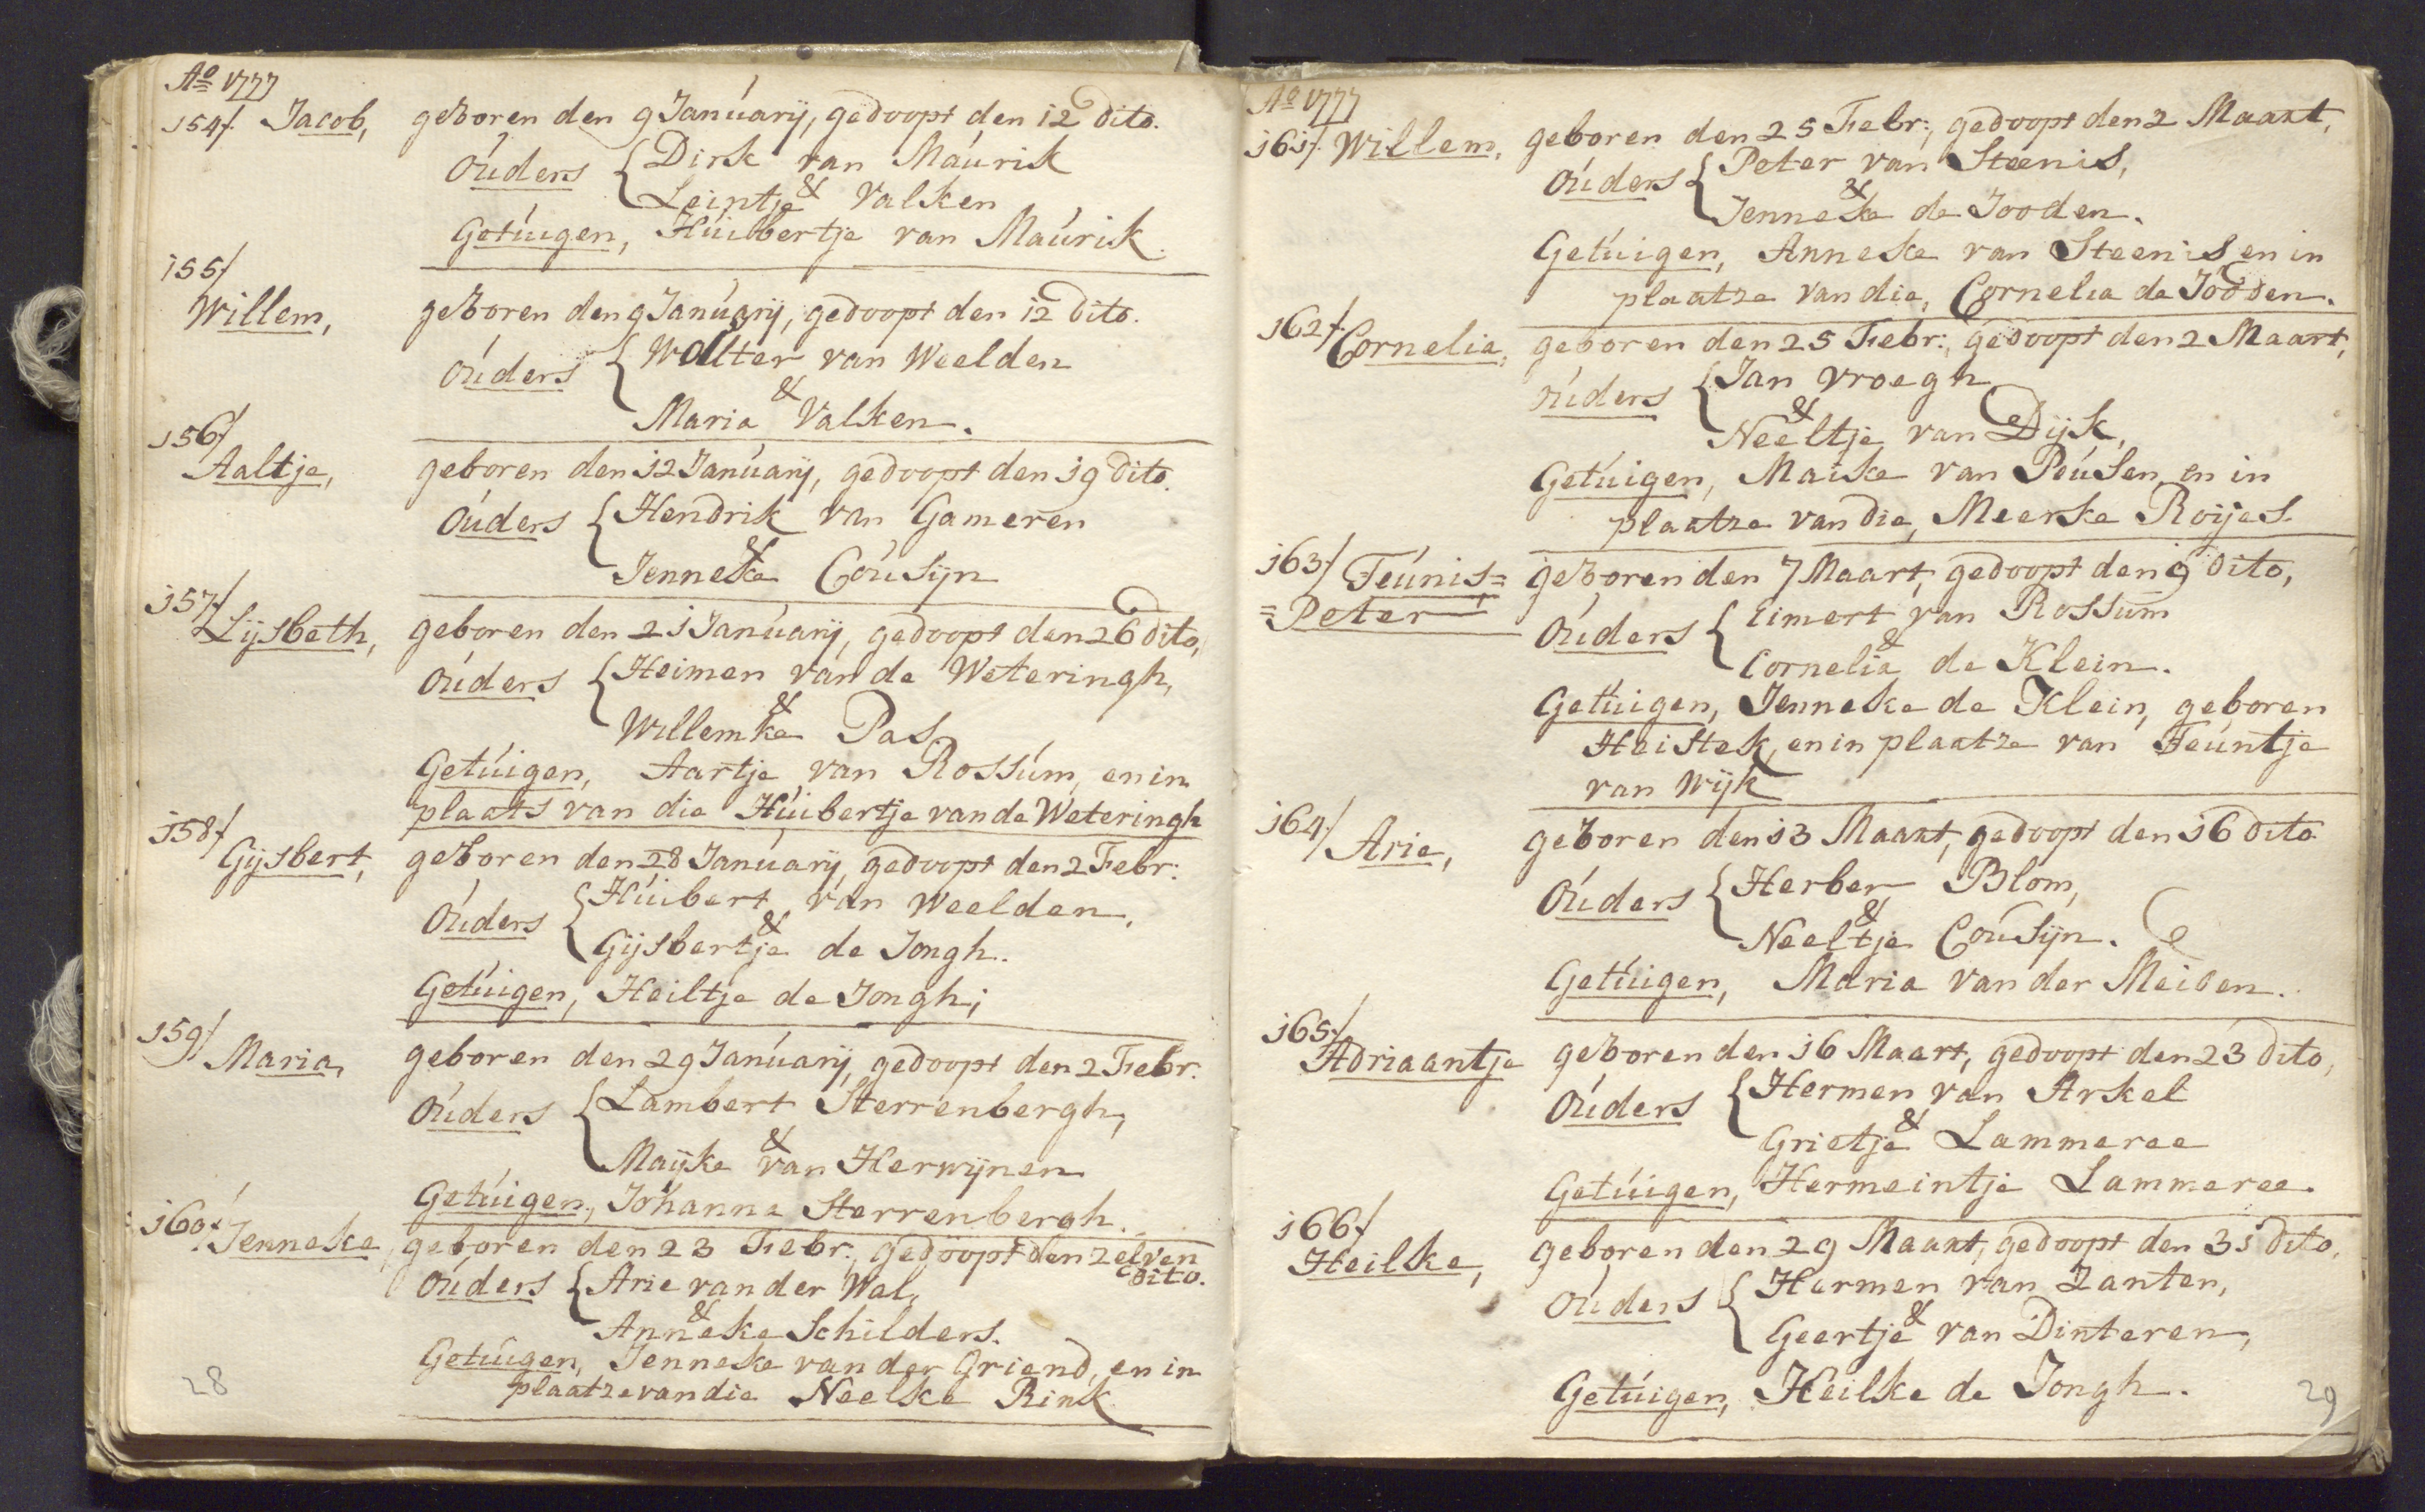 Ao 1777
154/. Jacob, geboren den 9 Januarij, gedoopt den 12 dito.
Ouders { Dirk van Maurik
&
Leintje Valken
Getuigen, Huibertje van Maurik.
155/
Willem, geboren den 9 Januarij, gedoopt den 12 dito.
Ouders { Wolter van Weelden
&
Maria Valken.
156/
Aaltje, geboren den 12 Januarij, gedoopt den 19 dito.
Ouders { Hendrik van Gameren
&
Jenneke Cousijn
157/
Lijsbeth, geboren den 21 Januarij, gedoopt den 26 dito,
Ouders { Heimen van de Weteringh,
&
Willemke Pas
Getuigen, Aartje van Rossum, en in
plaats van die Huibertje van de Weteringh
158/
Gijsbert, geboren den 28 Januarij, gedoopt den 2 Febr:
Ouders { Huibert van Weelden,
&
Gijsbertje de Jongh.
Getuigen, Heiltje de Jongh;
159/ Maria, geboren den 29 Januarij, gedoopt den 2 Febr.
Ouders { Lambert Sterrenbergh,
&
Maijke van Herwijnen
Getuigen, Johanna Sterrenbergh.
160/ Jenneke, geboren den 23 Febr:, gedoopt den zelven
dito.
Ouders { Arie van der Wal,
&
Anneke Schilders.
Getuigen, Jenneke van der Griend, en in
plaatze van die Neelke Rink
28
Ao 1777
161/. Willem, geboren den 25 Febr:, gedoopt den 2 Maart,
Ouders { Peter van Steenis,
&
Jenneke de Jooden.
Getuigen, Anneke van Steenis en in
plaatze van die, Cornelia de Jooden.
162/. Cornelia, geboren den 25 Febr:, gedoopt den 2 Maart,
Ouders { Jan Vroegh
&
Neeltje van Dijk,
Getuigen, Maike van Peusen, en in
plaatze van die, Meerke Roijes.
163/ Teunis= geboren den 7 Maart, gedoopt den 9 dito,
=Peter,
Ouders { Eimert van Rossum
&
Cornelia de Klein.
Getuigen, Jenneke de Klein, geboren
Heistek, en in plaatze van Teuntje
van Wijk
164/ Arie, geboren den 13 Maart, gedoopt den 16 dito
Ouders { Herber Blom,
&
Neeltje Cousijn.
Getuigen, Maria van der Meiden.
165/
Adriaantje geboren den 16 Maart, gedoopt den 23 dito,
Ouders { Hermen van Arkel
&
Grietje Lammeree
Getuigen, Hermeintje Lammeree.
166/
Heilke, geboren den 29 Maart, gedoopt den 31 dito,
Ouders { Harmen van Zanten,
&
Geertje van Dinteren,
Getuigen, Heilke de Jongh.
29